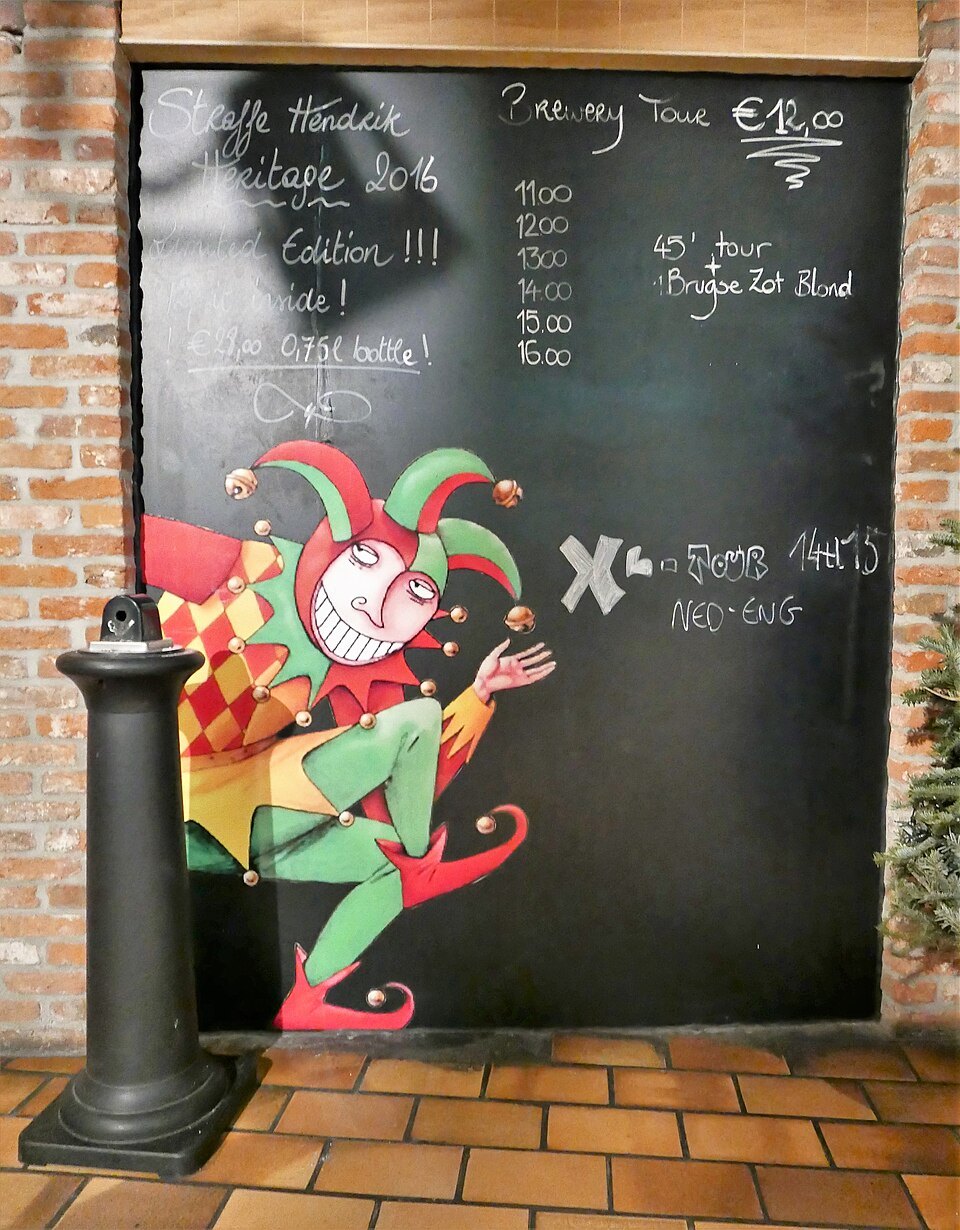 Straffe Hendrik
Heritage 2016
Limited Edition !!!
inside !
! 0,75l bottle !
Brewery Tour €12,00
11.00
12.00
13.00
14.00
15.00
16.00
45' tour
+
1 Brugse Zot Blond
NED-ENG